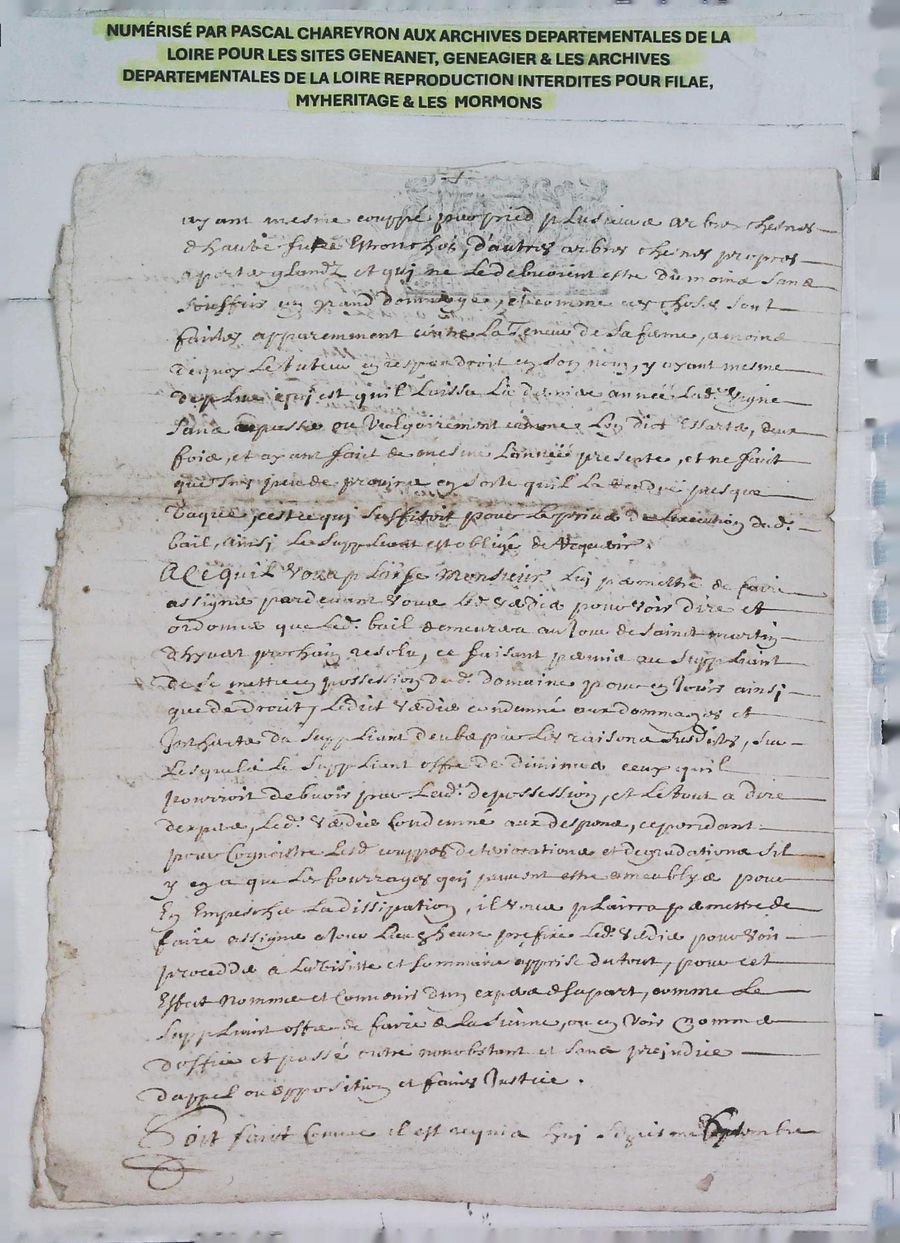 NUMÉRISÉ PAR PASCAL CHAREYRON AUX ARCHIVES DEPARTEMENTALES DE LA
LOIRE POUR LES SITES GENEANET, GENEAGIER & LES ARCHIVES
DEPARTEMENTALES DE LA LOIRE REPRODUCTION INTERDITES POUR FILAE,
MYHERITAGE & LES MORMONS
ayant mesme couppé par pied plusieurs arbres chesnes
d'haute futaÿe et d'autres arbres chesnes propres
a porter glandz et qui ne le debvoient estre du moins sans
souffrir un grand dommage, et comme ces choses sont
faictes apparemment contre la teneur de sa ferme, a moins
de quoy le auteur en respondroit en son nom, y ayant mesme
de plus qui est quil laissa la derniere année lad. vigne
sans ou vulgairement comme lon dict essarter, deux
fois, et ayant faict de mesme l'année presente, et ne faict
que tres peu de provins en sorte quil la rendue presque
vaquee, cest ce qui suffiroit pour le priver de lexecution dud.
bail, ainsi le suppliant est obligé de requerir.
A ce quil vous plaise Monsieur luy permettre de faire
assigner pardevant vous led. pour voir dire et
ordonner que led. bail demeurera au jour de sainct martin
d'hyver prochain resolu, ce faisant permis au suppliant
de se mettre en possession dud. domaine pour en jouir ainsi
que de droit, ledict condamné aux dommages et
interests du suppliant deubs par les raisons susdictes, sur
lesquels le suppliant offre de diminuer ceux quil
pourroit debvoir pour lad. depossession, et le tout a dire
d'expers, led. condamné aux despens, cependant
pour cognoistre lesd. couppes deteriorations et degradations sil
y en a que les fourrages qui peuvent estre pour
en empescher la dissipation, il vous plairra permettre de
faire assigner a jour lieu & heure prefixe led. pour voir
proceder a la visitte et sommaire apprise du tout, pour cet
effect nommer et convenir d'un expert de sa part, comme le
suppliant offre de faire de la sienne, ou en voir nommer
d'office et passé outre nonobstant et sans prejudice
d'appel ou opposition et faires justice.
Soit faict comme il est requis septembre